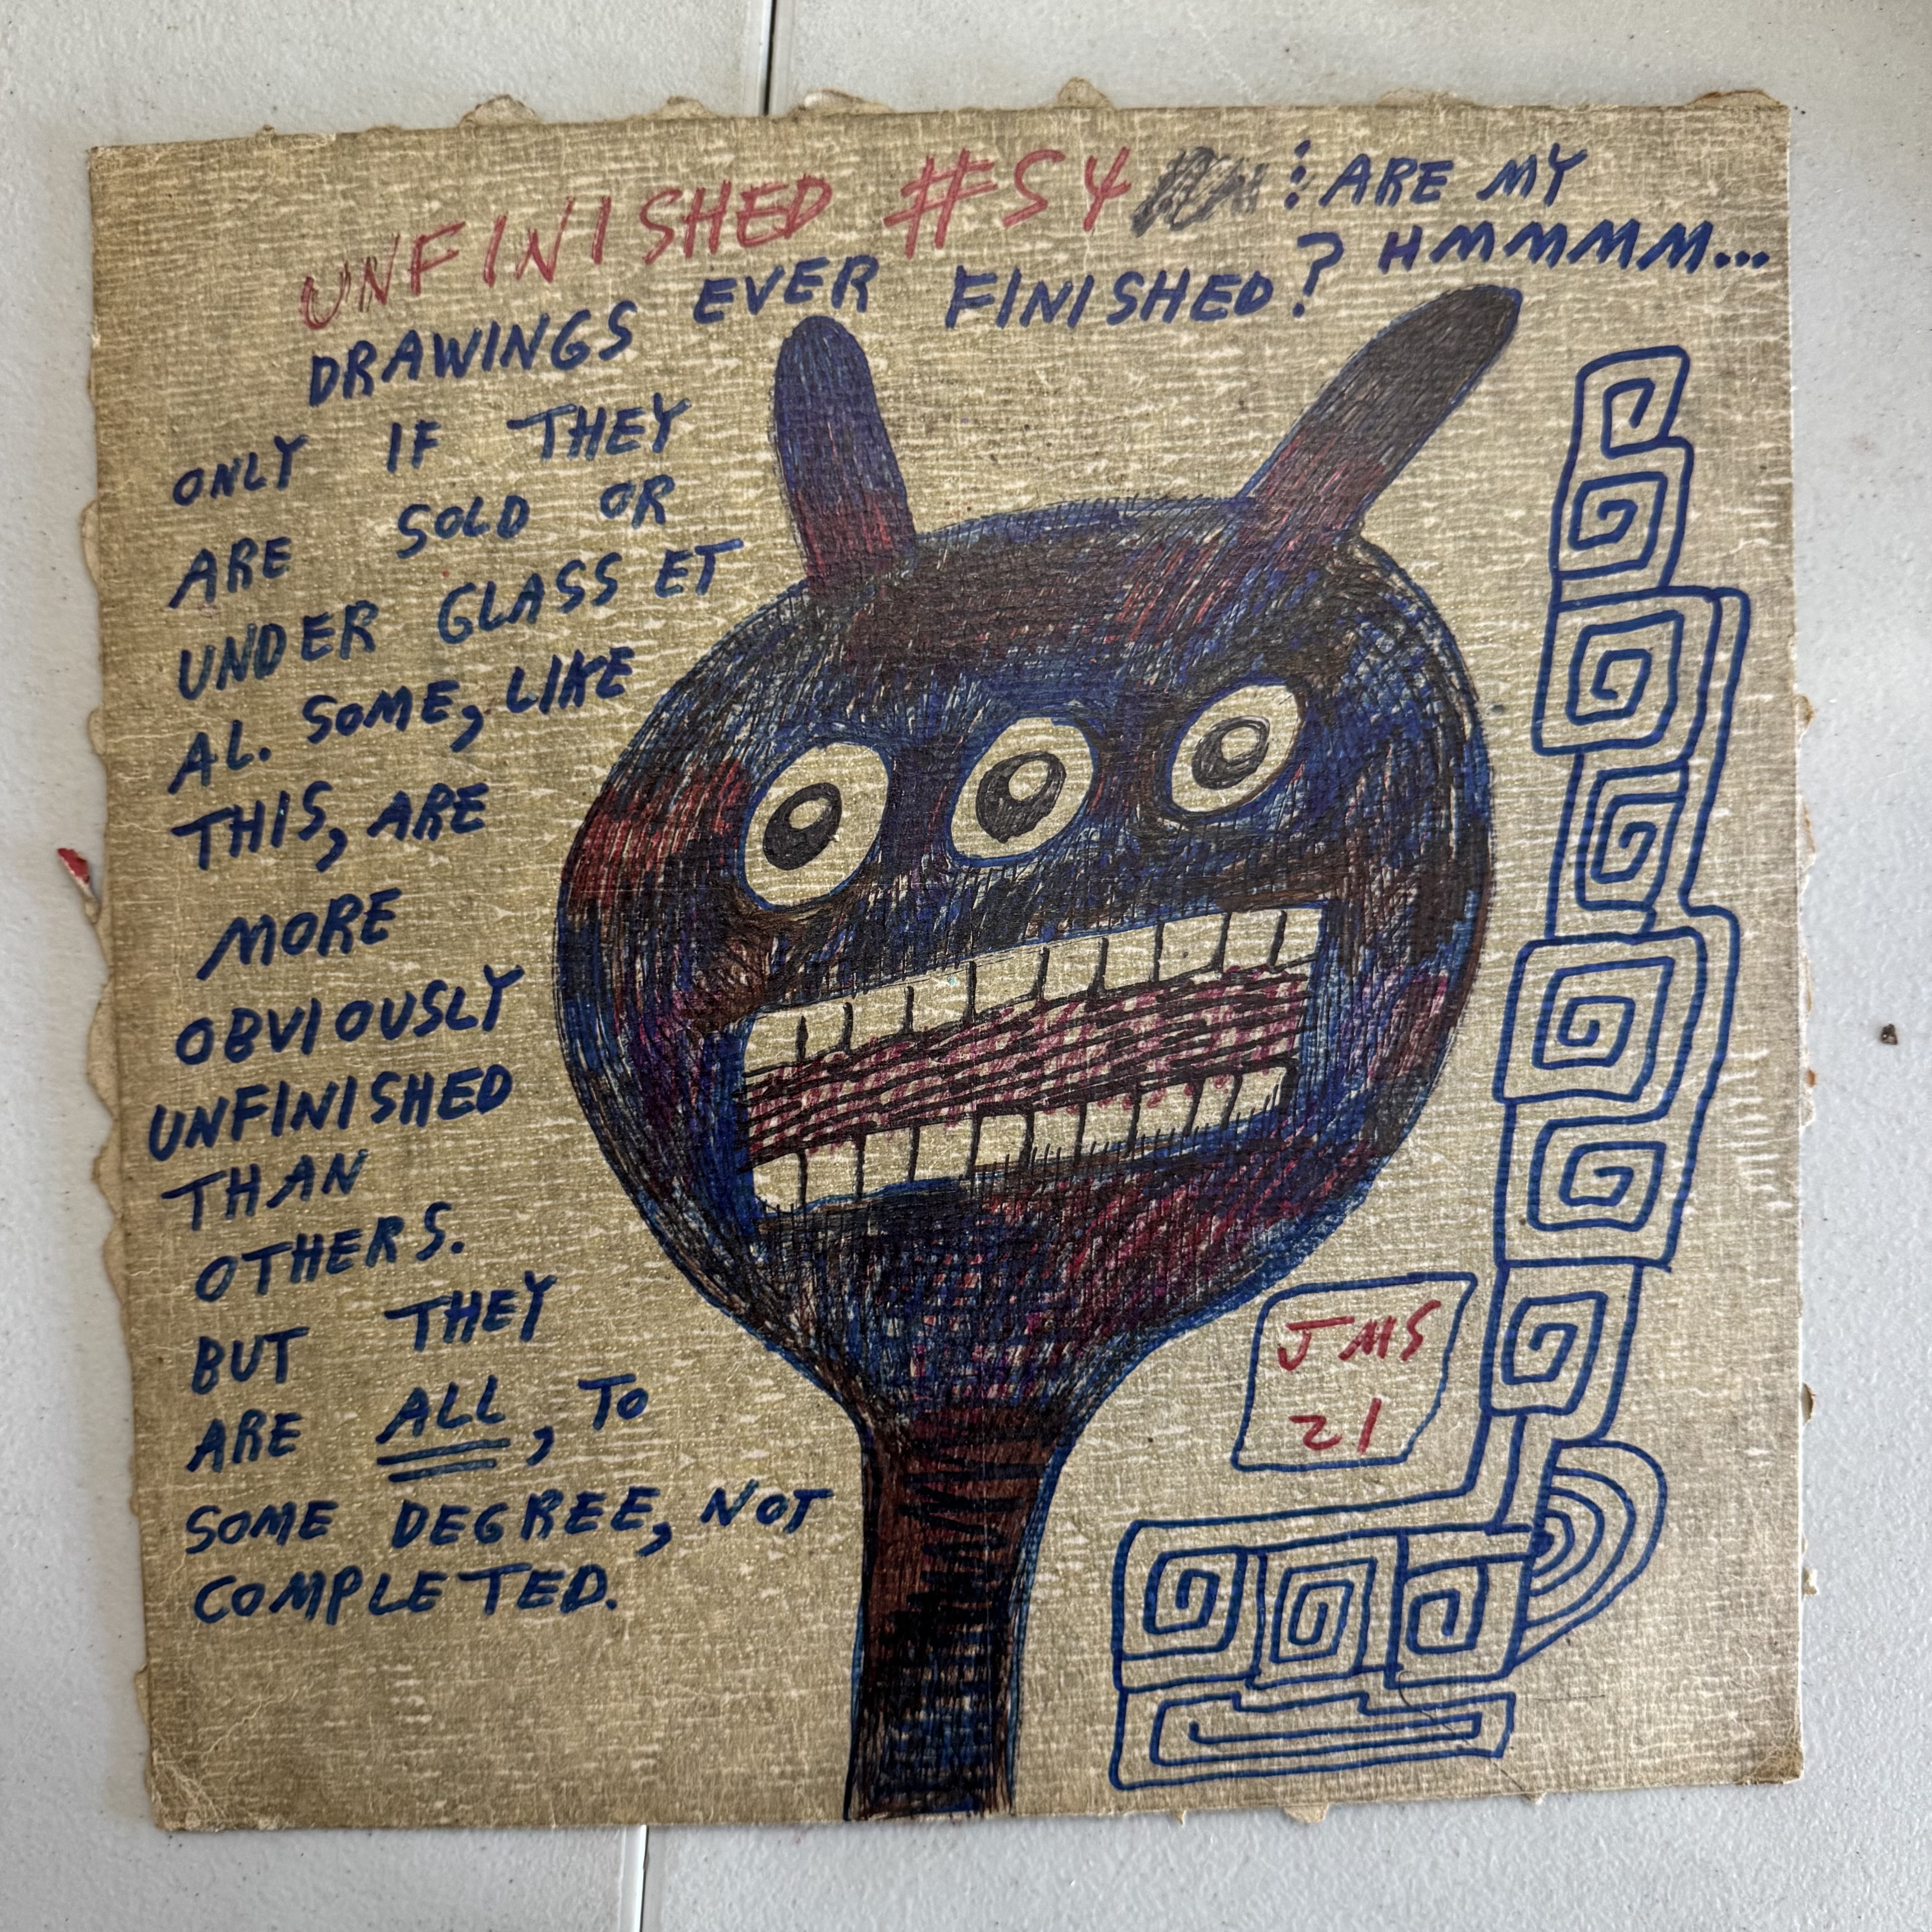 UNFINISHED #54 : ARE MY
DRAWINGS EVER FINISHED? HMMMM...
ONLY IF THEY
ARE SOLD OR
UNDER GLASS ET
AL. SOME, LIKE
THIS, ARE
MORE
OBVIOUSLY
UNFINISHED
THAN
OTHERS.
BUT THEY
ARE ALL, TO
SOME DEGREE, NOT
COMPLETED.
JMS
21